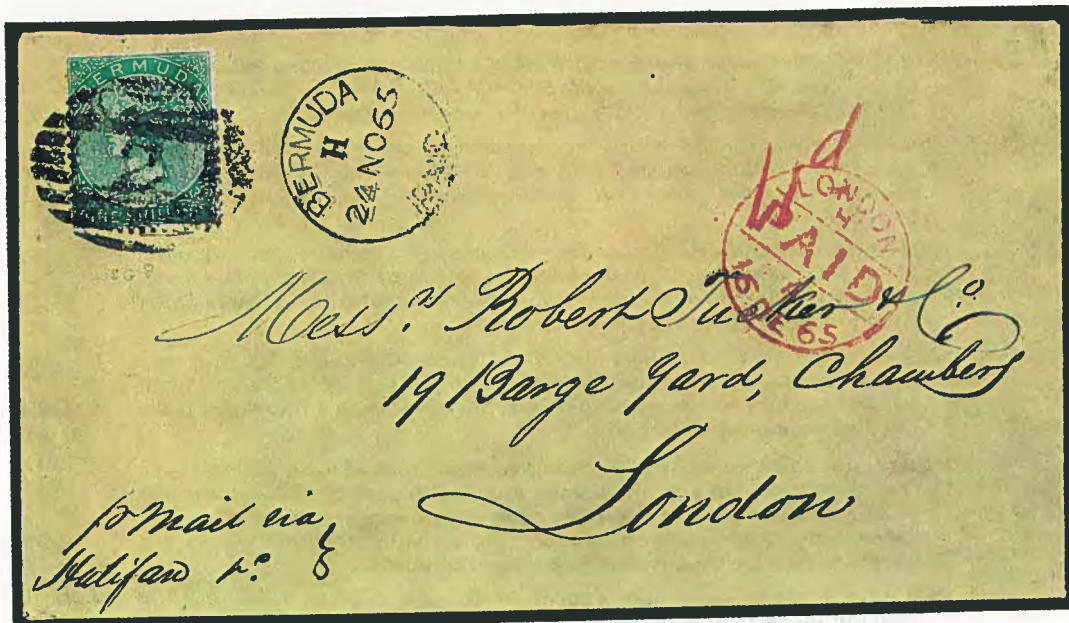 BERMUDA
ONE SHILLING
BERMUDA
H
24 NO 65
PAID
d
LONDON
PAID
16 DE 65
Mess.rs Robert Tucker & Co.
19 Barge Yard, Chambers
London
p Mail via
Halifax